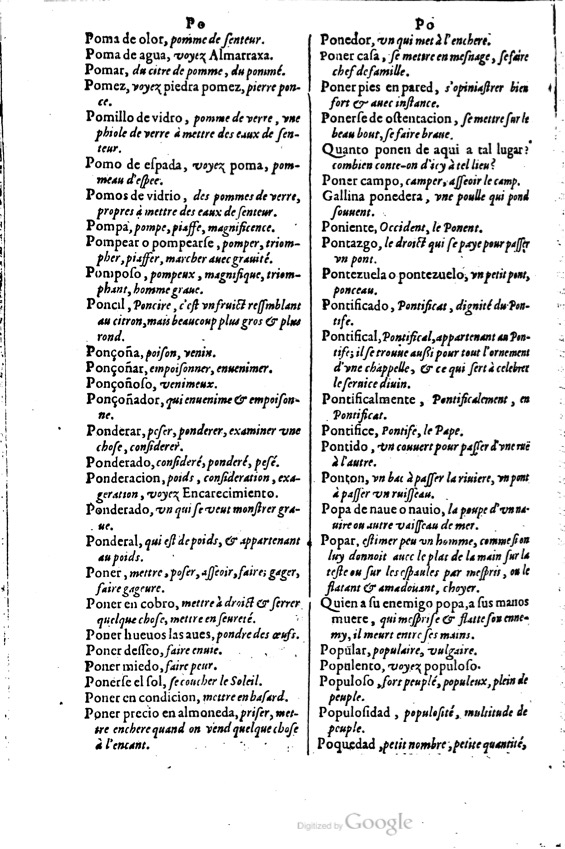 Po
Poma de olor, pomme de senteur.
Poma de agua, voyez Almarraxa.
Pomar, du citre de pomme, du pommé.
Pomez, voyez piedra pomez, pierre pon-
ce.
Pomillo de vidro, pomme de verre, vne
phiole de verre à mettre des eaux de sen-
teur.
Pomo de espada, voyez poma, pom-
meau d'espee.
Pomos de vidrio, des pommes de verre,
propres à mettre des eaux de senteur.
Pompa, pompe, piaffe, magnificence.
Pompear o pompearse, pomper, triom-
pher, piaffer, marcher auec grauité.
Pomposo, pompeux, magnifique, triom-
phant, homme graue.
Poncil, Poncire, c'est vn fruict ressemblant
au citron, mais beaucoup plus gros & plus
rond.
Ponçoña, poison, venin.
Ponçoñar, empoisonner, enuenimer.
Ponçoñoso, venimeux.
Ponçoñador, qui enuenime & empoison-
ne.
Ponderar, peser, ponderer, examiner vne
chose, considerer.
Ponderado, consideré, ponderé, pesé.
Ponderacion, poids, consideration, exa-
geration, voyez Encarecimento.
Ponderado, vn qui se veut monstrer gra-
ue.
Ponderal, qui est de poids, & appartenant
au poids.
Poner, mettre, poser, asseoir, faire; gager,
faire gageure.
Poner en cobro, mettre à droict & serrer
quelque chose, mettre en seureté.
Poner hueuos las aues, pondre des œufs.
Poner desseo, faire enuie.
Poner miedo, faire peur.
Ponerse el sol, se coucher le Soleil.
Poner en condicion, mettre en hasard.
Poner precio en almoneda, priser, met-
tre enchere quand on vend quelque chose
à l'encant.
Po
Ponedor, vn qui met à l'enchere.
Poner casa, se mettre en mesnage, se faire
chef de famille.
Poner pies en pared, s'opiniastrer bien
fort & auec instance.
Ponerse de ostentacion, se mettre sur le
beau bout, se faire braue.
Quanto ponen de aqui a tal lugar?
combien conte-on d'icy à tel lieu?
Poner campo, camper, asseoir le camp.
Gallina ponedera, vne poulle qui pond
souuent.
Poniente, Occident, le Ponent.
Pontazgo, le droict qui se paye pour passer
vn pont.
Pontezuela o pontezuelo, vn petit pont,
ponceau.
Pontificado, Pontificat, dignité du Pon-
tife.
Pontifical, Pontifical, appartenant au Pon-
tife; il se trouue aussi pour tout l'ornement
d'vne chappelle, & ce qui sert à celebrer
le seruice diuin.
Pontificalmente, Pontificalement, en
Pontificat.
Pontifice, Pontife, le Pape.
Pontido, vn couuert pour passer d'vne ruë
à l'autre.
Ponton, vn bac à passer la riuiere, vn pont
à passer vn ruisseau.
Popa de naue o nauio, la poupe d'vn na-
uire ou autre vaisseau de mer.
Popar, estimer peu vn homme, comme si on
luy donnoit auec le plat de la main sur la
teste ou sur les espaules par mespris, ou le
flatant & amadoüant, choyer.
Quien a su enemigo popa, a sus manos
muere, qui mesprise & flatte son enne-
my, il meurt entre ses mains.
Popular, populaire, vulgaire.
Populento, voyez populoso.
Populoso, fort peuplé, populeux, plein de
peuple.
Populosidad, populosité, multitude de
peuple.
Poquedad, petit nombre, petite quantité,
Digitized by Google